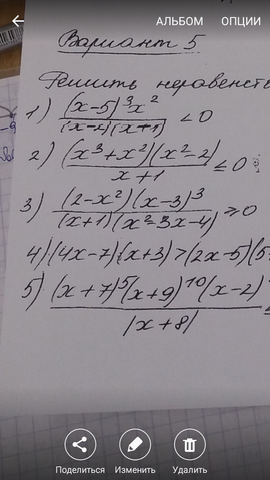 АЛЬБОМ ОПЦИИ
Вариант 5
Решить неравенств
1) (x-5)³x² / (x-2)(x+1) <0
2) (x³+x²)(x²-2) / x+1 ≤0
3) (2-x²)(x-3)³ / (x+1)(x²-3x-4) ≥0
4) (4x-7)(x+3)>(2x-5)(5
5) (x+7)⁵(x+9)¹⁰(x-2) / |x+8|
Поделиться Изменить Удалить